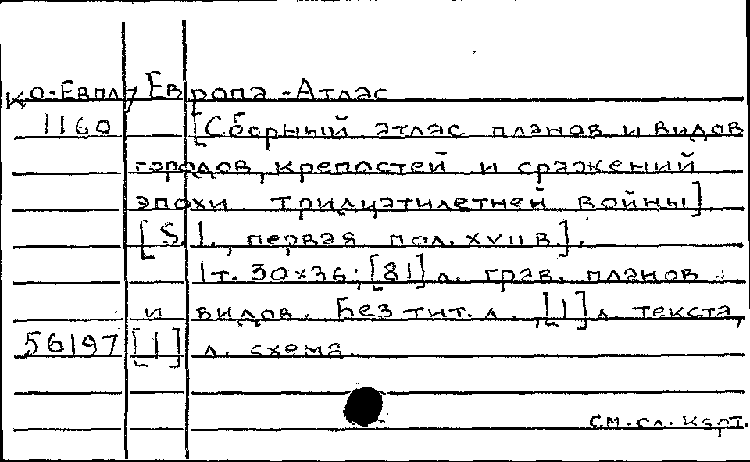 Ко-Евпл/ Европа - Атлас
1160 [Сборный атлас планов и видов
городов, крепостей и сражений
эпохи тридцатилетней войны].
[S.l., первая пол. XVII в.].
1т. 30×36; [81] л. грав. планов
и видов. Без тит. л., [1] л. текста,
56197 [1] л. схема.
см. сл. карт.